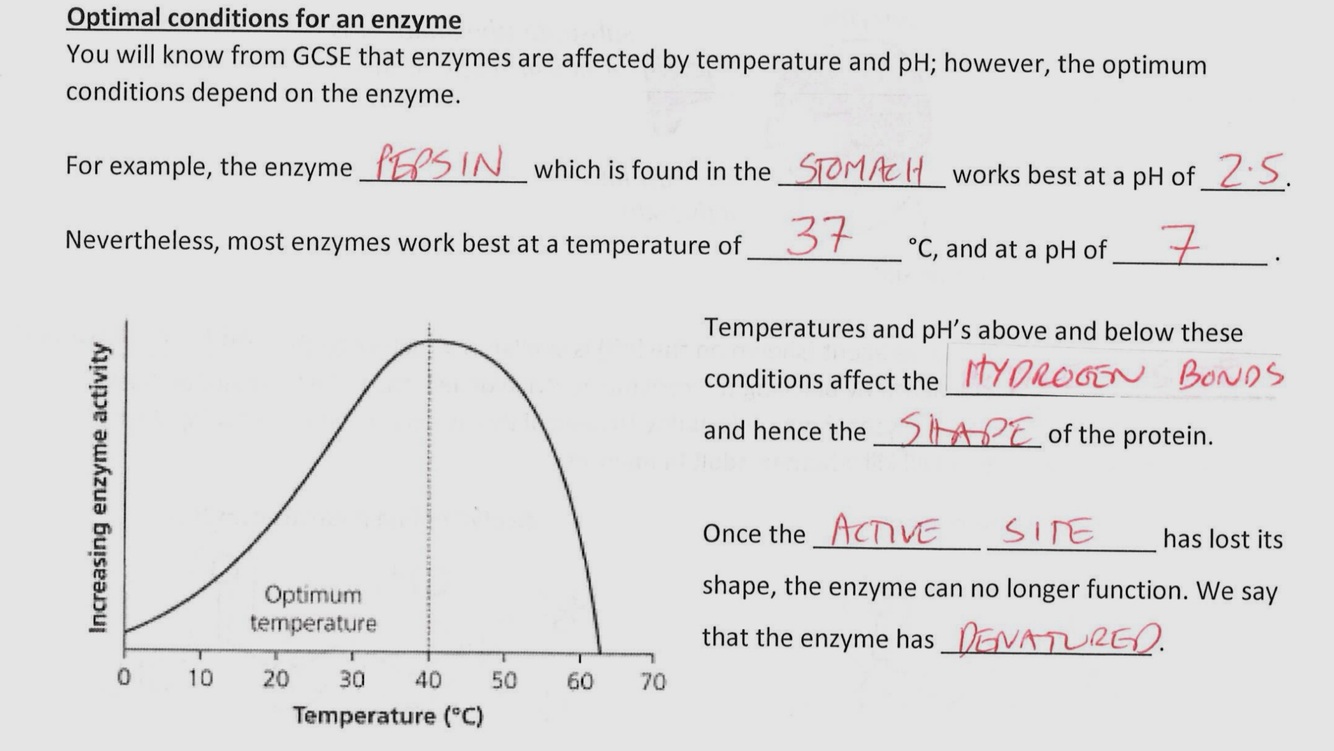 Optimal conditions for an enzyme
You will know from GCSE that enzymes are affected by temperature and pH; however, the optimum
conditions depend on the enzyme.
For example, the enzyme PEPSIN which is found in the STOMACH works best at a pH of 2.5.
Nevertheless, most enzymes work best at a temperature of 37 °C, and at a pH of 7.
Increasing enzyme activity
Optimum
temperature
0 10 20 30 40 50 60 70
Temperature (°C)
Temperatures and pH's above and below these
conditions affect the HYDROGEN BONDS
and hence the SHAPE of the protein.
Once the ACTIVE SITE has lost its
shape, the enzyme can no longer function. We say
that the enzyme has DENATURED.